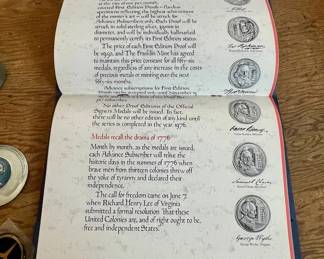 at the rate of one per month
Limited First Edition Proofs — flawless
specimens reflecting the highest achievement
of the medalist's art — will be struck for
Advance Subscribers only. Each proof will be
struck in solid sterling silver,
diameter, and will be individually hallmarked
to permanently certify its First Edition status.
The price of each First Edition Proof will
be $9.50, and The Franklin Mint has agreed
to maintain this price constant for all fifty-six
medals, regardless of any increase in the costs
of precious metals or minting over the next
Advance subscriptions for First Edition
by subscriber.
No other Proof Editions of the Official
Signers Medals will be issued. In fact,
there will be no other edition of any kind until
the series is completed in the year 1976.
Medals recall the drama of 1776
Month by month, as the medals are issued,
each Advance Subscriber will relive the
historic days in the summer of 1776 when
brave men from thirteen colonies threw off
the yoke of tyranny and declared their
independence.
The call for freedom came on June 7
when Richard Henry Lee of Virginia
submitted a formal resolution "That these
United Colonies are, and of right ought to be,
free and independent States."
Samuel Chase
George Wythe